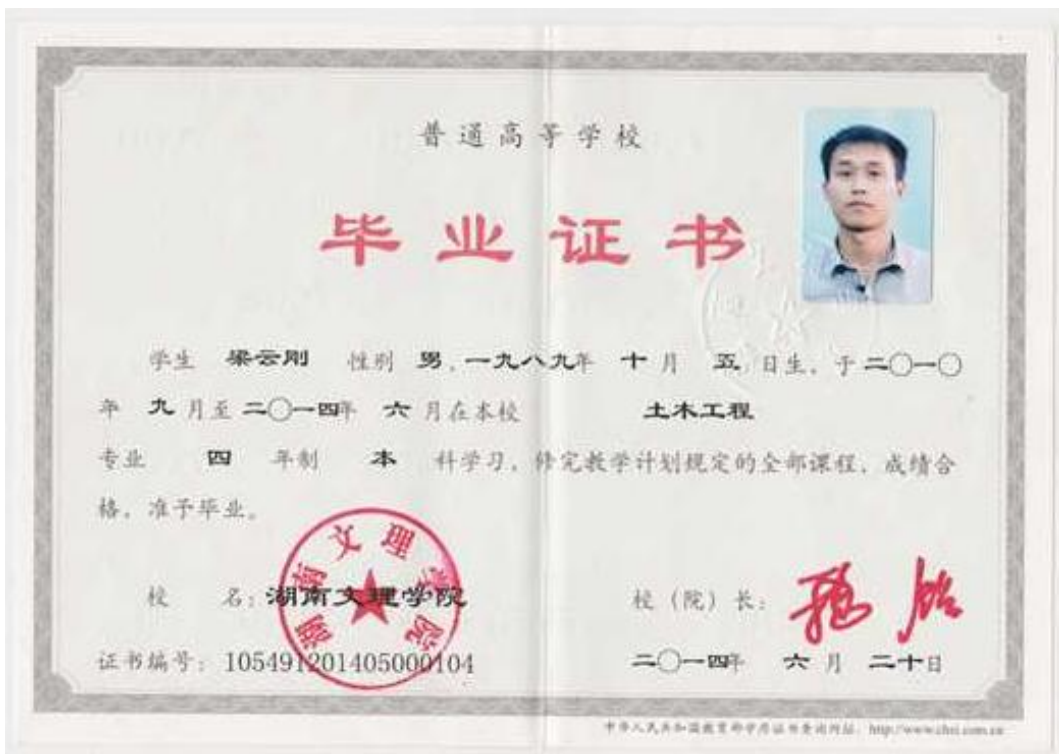 普通高等学校
毕业证书
学生 梁云刚 性别 男，一九八九年 十月 五日生，于二〇一〇
年 九月至二〇一四年 六月在本校 土木工程
专业 四 年制 本 科学习，修完教学计划规定的全部课程，成绩合
格，准予毕业。
湖南文理学院
校 名：湖南文理学院 校（院）长：
证书编号：105491201405000104 二〇一四年 六月 二十日
中华人民共和国教育部学历证书查询网址：http://www.chsi.com.cn